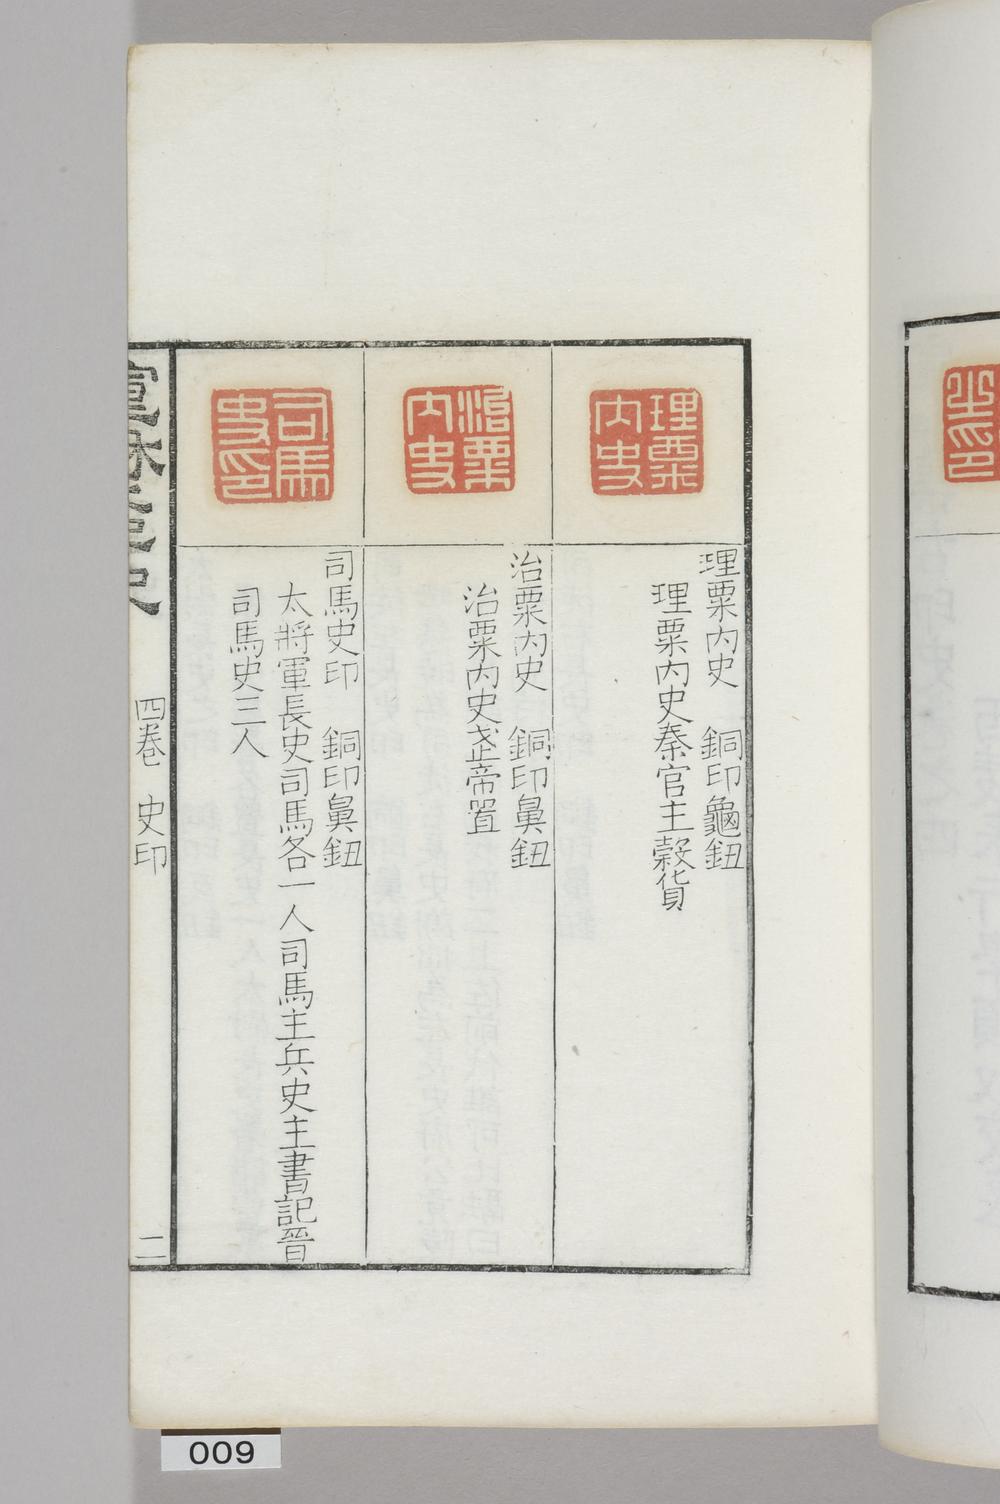 理粟內史
理粟內史　銅印龜鈕
理粟內史秦官主穀貨
治粟內史
治粟內史　銅印鼻鈕
治粟內史武帝置
司馬史印
司馬史印　銅印鼻鈕
太將軍長史司馬各一人司馬主兵史主書記晉
司馬史三人
四卷　史印
二
009